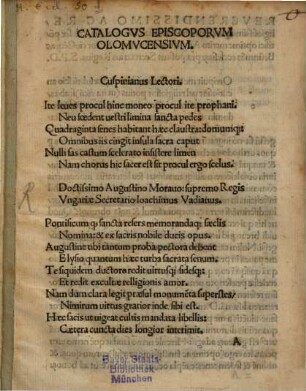 CATALOGVS EPISCOPORVM
OLOMVCENSIVM.
Cuspinianus Lectori.
Ite leues procul hinc moneo procul ite prophani.
Neu fœdent uestri limina sancta pedes
Quadraginta senes habitant hæc claustra: domumq;
Omnibus iis cingit insula sacra caput
Nulli fas castum scelerato insistere limen
Nam chorus hic sacer est sit procul ergo scelus.
Doctissimo Augustino Morauo: supremo Regis
Vngariæ Secretario Ioachimus Vadianus.
Pontificum q; sancta refers memorandaq; sæclis
Nomina: & ex sacris nobile ducis opus.
Augustine tibi tantum proba pectora debent
Elysio quantum hæc turba sacrata senum.
Te siquidem ductore redit uirtusq; fidesq;
Et redit excultæ relligionis amor.
Nam dum clara legit præsul monumēta superstes/
Nimirum uitius gratior inde sibi est.
Hæc facis ut uigeat cultis mandata libellis:
Cætera cuncta dies longior interimit.
A
R
Bayer. Staats-
Bibliothek
München